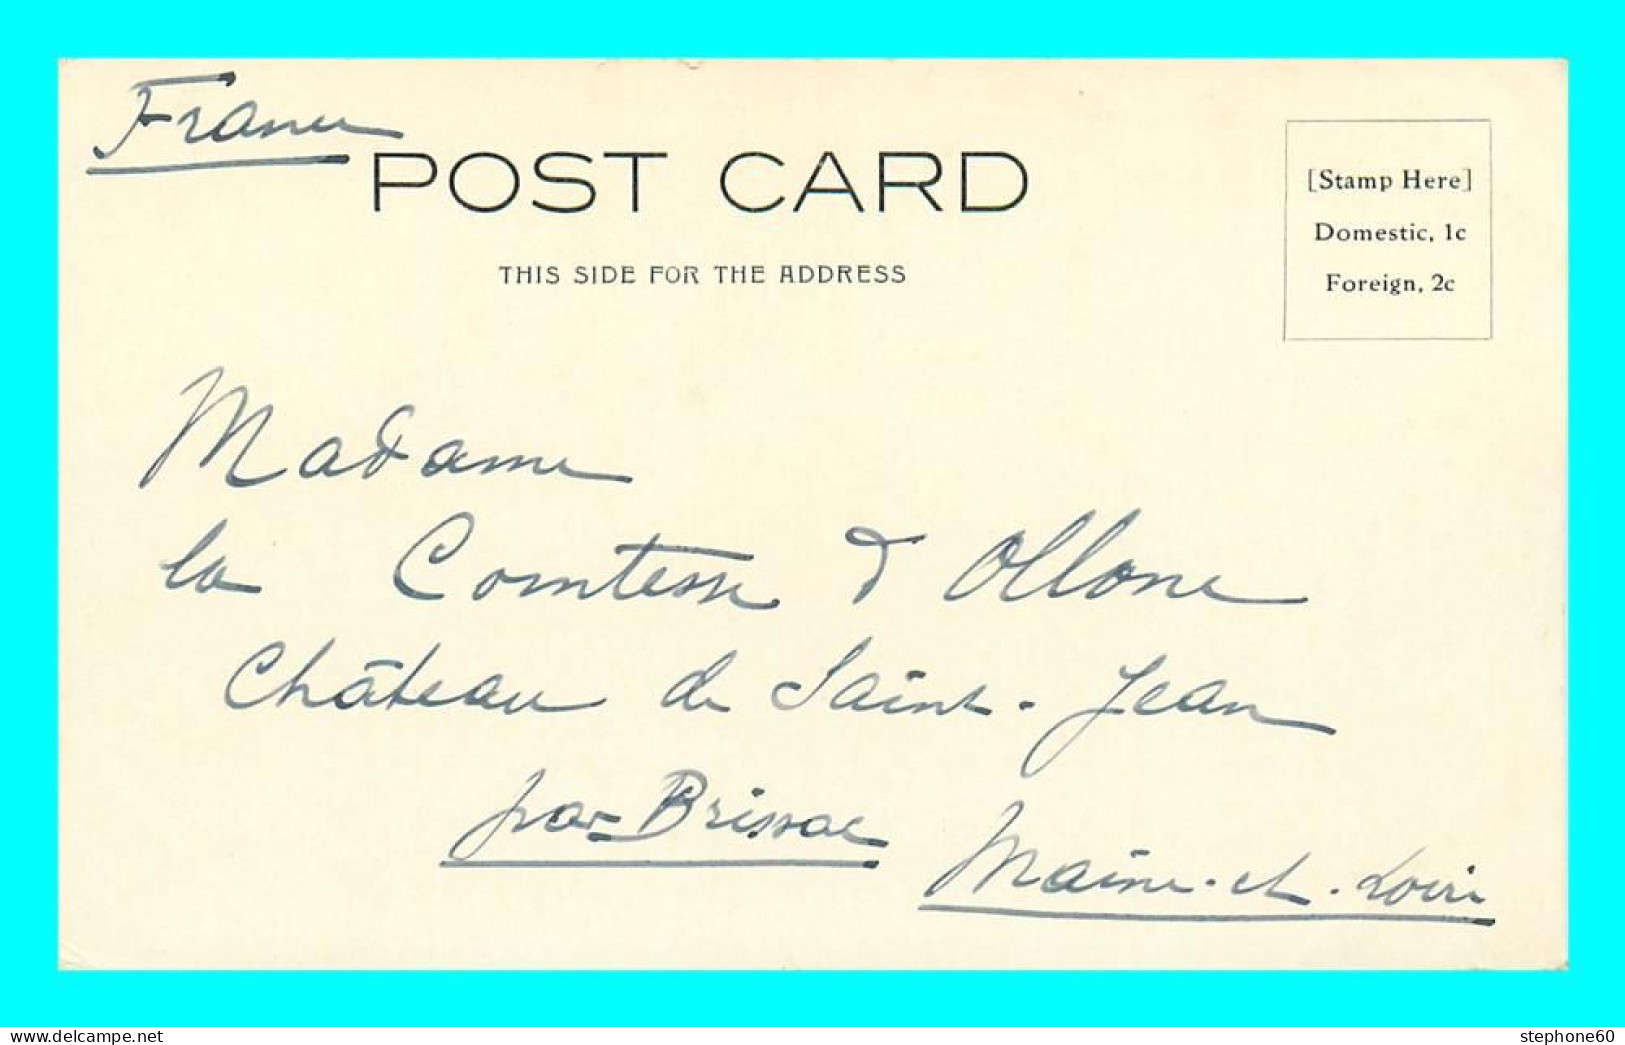 France
POST CARD
THIS SIDE FOR THE ADDRESS
[Stamp Here]
Domestic, 1c
Foreign, 2c
Madame
la Comtesse d'Ollone
Château de Saint-Jean
par Brissac
Maine-et-Loire
delcampe.net
stephone60